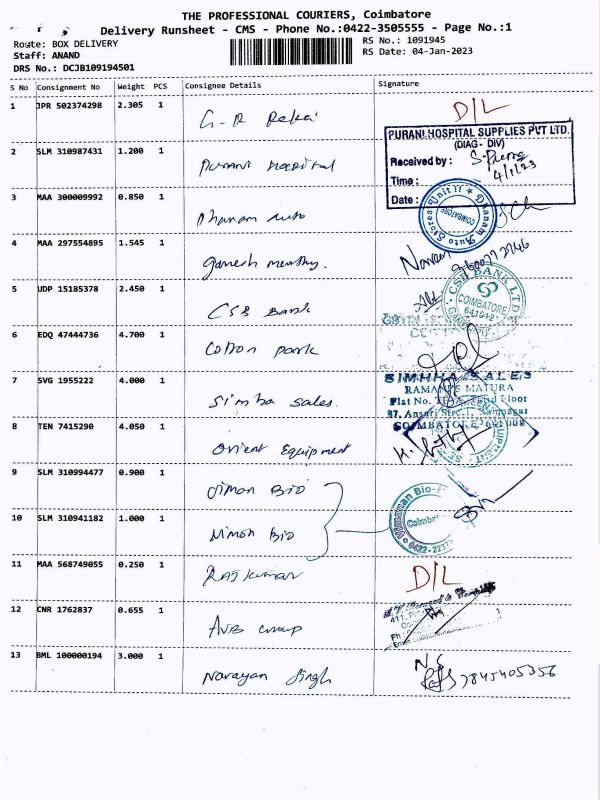 THE PROFESSIONAL COURIERS, Coimbatore
Delivery Runsheet - CMS - Phone No.:0422-3505555 - Page No.:1
Route: BOX DELIVERY
RS No.: 1091945
Staff: ANAND
RS Date: 04-Jan-2023
DRS No.: DCJB109194501
S No Consignment No Weight PCS Consignee Details Signature
1 JPR 502374298 2.305 1 G-R D/L
2 SLM 310987431 1.200 1 Purani Hospital
PURANI HOSPITAL SUPPLIES PVT LTD.
(DIAG - DIV)
Received by :
4/1/23
Time :
Date :
3 MAA 300009992 0.850 1 Dhanam Auto
Dhanam Auto Stores Unit II
COIMBATORE
4 MAA 297554895 1.545 1 Ganesh Naveen
5 UDP 15185378 2.450 1 CSB Bank
CSB BANK LTD
COIMBATORE
6 EDQ 47444736 4.700 1 Cotton park
7 SVG 1955222 4.000 1 Simba Sales.
SIMHHA SALES
RAMANI'S MATURA
Flat No.
COIMBATORE 641 002
8 TEN 7415290 4.050 1 Orient Equipment
9 SLM 310994477 0.900 1 Bio
10 SLM 310941182 1.000 1 Bio
Vimanan Bio-
Coimbat
0422-223
11 MAA 568749055 0.250 1 Rajkumar D/L
12 CNR 1762837 0.655 1 AVB Group
13 BML 100000194 3.000 1 Narayan Singh N.S 7845405356